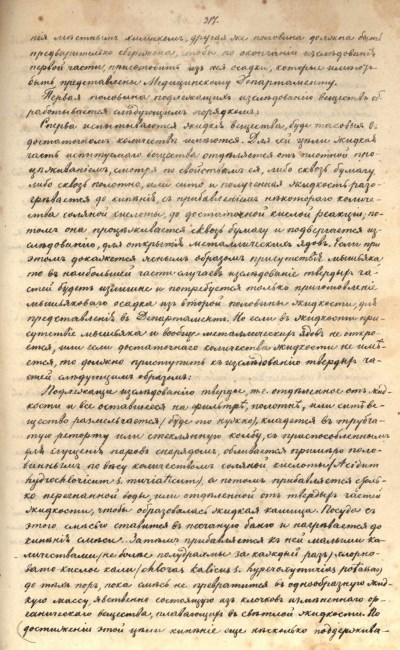 217.
нія мѣстнымъ химикомъ, другая же половина должна быть
предварительно сбережена, чтобы по окончаніи изслѣдованія
первой части, приготовить изъ нея осадки, которые имѣютъ
быть представлены Медицинскому Департаменту.
Первая половина подлежащихъ изслѣдованію веществъ об-
работывается слѣдующимъ порядкомъ:
Сперва испытываются жидкія вещества, буде таковыя въ
достаточномъ количествѣ имѣются. Для сей цѣли жидкая
часть испытуемаго вещества отдѣляется отъ плотной про-
цѣживаніемъ, смотря по свойствамъ ея, либо сквозь бумагу,
либо сквозь полотно, или сито и полученная жидкость разо-
грѣвается до кипѣнія, съ прибавленіемъ нѣкотораго количе-
ства соляной кислоты, до достаточной кислой реакціи, по-
томъ она процѣживается сквозь бумагу и подвергается из-
слѣдованію, для открытія металлическихъ ядовъ. Если при
этомъ докажется яснымъ образомъ присутствіе мышьяка
то въ наибольшей части случаевъ изслѣдованіе твердыхъ ча-
стей будетъ излишне и потребуется только приготовленіе
мышьяковаго осадка изъ второй половины жидкости, для
представленія въ Департаментъ. Но если въ жидкости при-
сутствіе мышьяка и вообще металлическихъ ядовъ не откро-
ется, или если достаточнаго количества жидкости не имѣ-
ется, то должно приступить къ изслѣдованію твердыхъ ча-
стей слѣдующимъ образомъ:
Подлежащія изслѣдованію твердыя, т.е. отдѣленное отъ жид-
кости и все оставшееся на фильтрѣ, полотнѣ, или ситѣ ве-
щество размельчается (буде то нужно), кладется въ трубча-
тую реторту или стеклянную колбу, съ приспособленнымъ
для сгущенія паровъ снарядомъ, обливается примѣрно поло-
виннымъ по вѣсу количествомъ соляной кислоты (Acidum
hydrochloricum s. muriaticum), а потомъ прибавляется столь-
ко перегнанной воды, или отдѣленной отъ твердыхъ частей
жидкости, чтобы образовалась жидкая кашица. Посуда съ
этою смѣсью ставится въ песчаную баню и нагрѣвается до
кипѣнія смѣси. Затѣмъ прибавляется къ ней малыми ко-
личествами (не болѣе полудрахмы за каждый разъ) хлорно-
вато-кислое кали (chloras kalicus s. hyperoxymurias potassae)
до тѣхъ поръ, пока смѣсь не превратится въ однообразную жид-
кую массу, явственно состоящую изъ клочковъ измѣненнаго ор-
ганическаго вещества, плавающихъ въ свѣтлой жидкости. По
достиженіи этой цѣли кипѣніе еще нѣсколько поддержива-